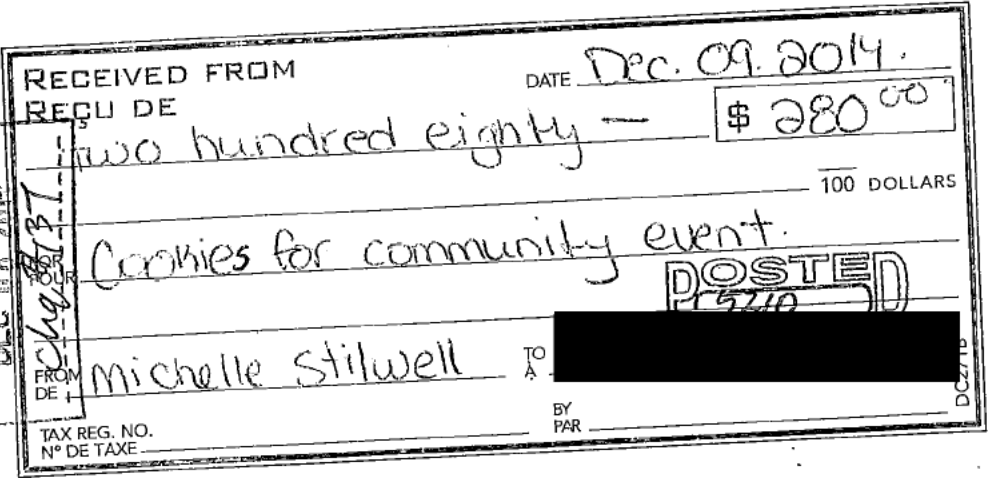 RECEIVED FROM
RECU DE
DATE Dec. 09. 2014.
two hundred eighty — $ 280 00
100 DOLLARS
Cookies for community event.
POSTED
5210
Chq # 37
FROM michelle Stilwell TO
DE A
BY
PAR
TAX REG. NO.
N° DE TAXE
DC27TB